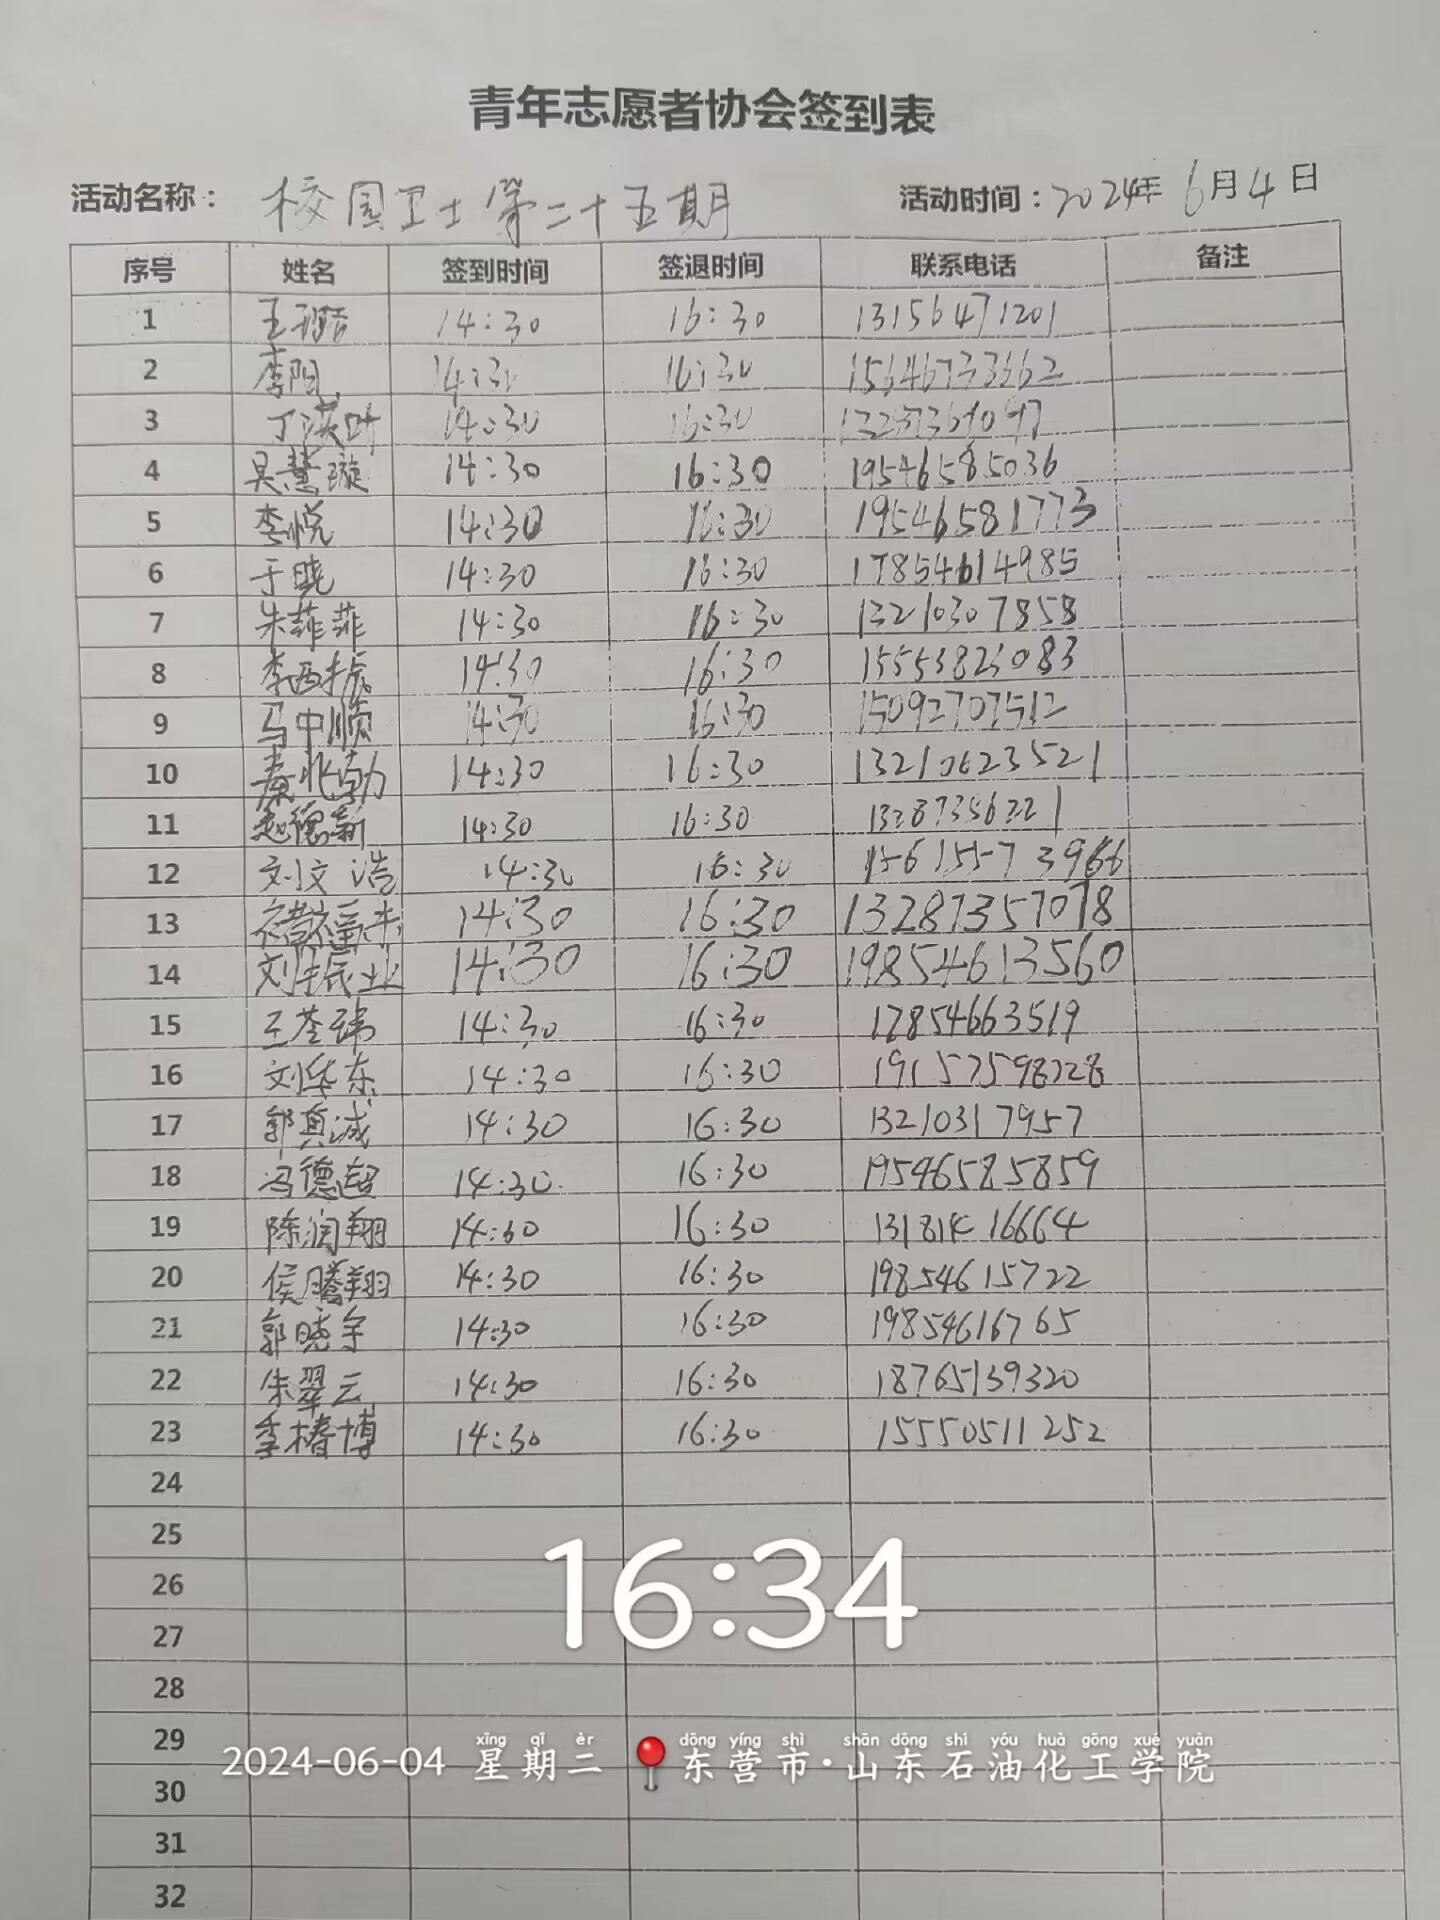 青年志愿者协会签到表
活动名称： 校园卫士第二十五期 活动时间：2024年6月4日
序号 姓名 签到时间 签退时间 联系电话 备注
1 14:30 16:30 13156471201
2 李阳 14:30 16:30 15646733662
3 丁滢叶 14:30 16:30
4 吴慧璇 14:30 16:30 19546585036
5 李悦 14:30 16:30 19546581773
6 于晓 14:30 16:30 17854614985
7 朱菲菲 14:30 16:30 13210307858
8 李西振 14:30 16:30 15553823083
9 马中顺 14:30 16:30 15092707512
10 秦兆勃 14:30 16:30 13210623521
11 赵德新 14:30 16:30 13287356221
12 刘文浩 14:30 16:30 15615573966
13 14:30 16:30 13287357078
14 刘振业 14:30 16:30 19854613560
15 王荃玮 14:30 16:30 17854663519
16 刘华东 14:30 16:30 19157598728
17 郭真诚 14:30 16:30 13210317957
18 冯德超 14:30 16:30 19546585859
19 陈润翔 14:30 16:30 13181416664
20 侯腾翔 14:30 16:30 19854615722
21 郭晓宇 14:30 16:30 19854616765
22 朱翠云 14:30 16:30 18765139320
23 李椿博 14:30 16:30 15550511252
24
25
16:34
26
27
28
29
xīng qī èr dōng yíng shì shān dōng shí yóu huà gōng xué yuàn
2024-06-04 星期二 东营市·山东石油化工学院
30
31
32